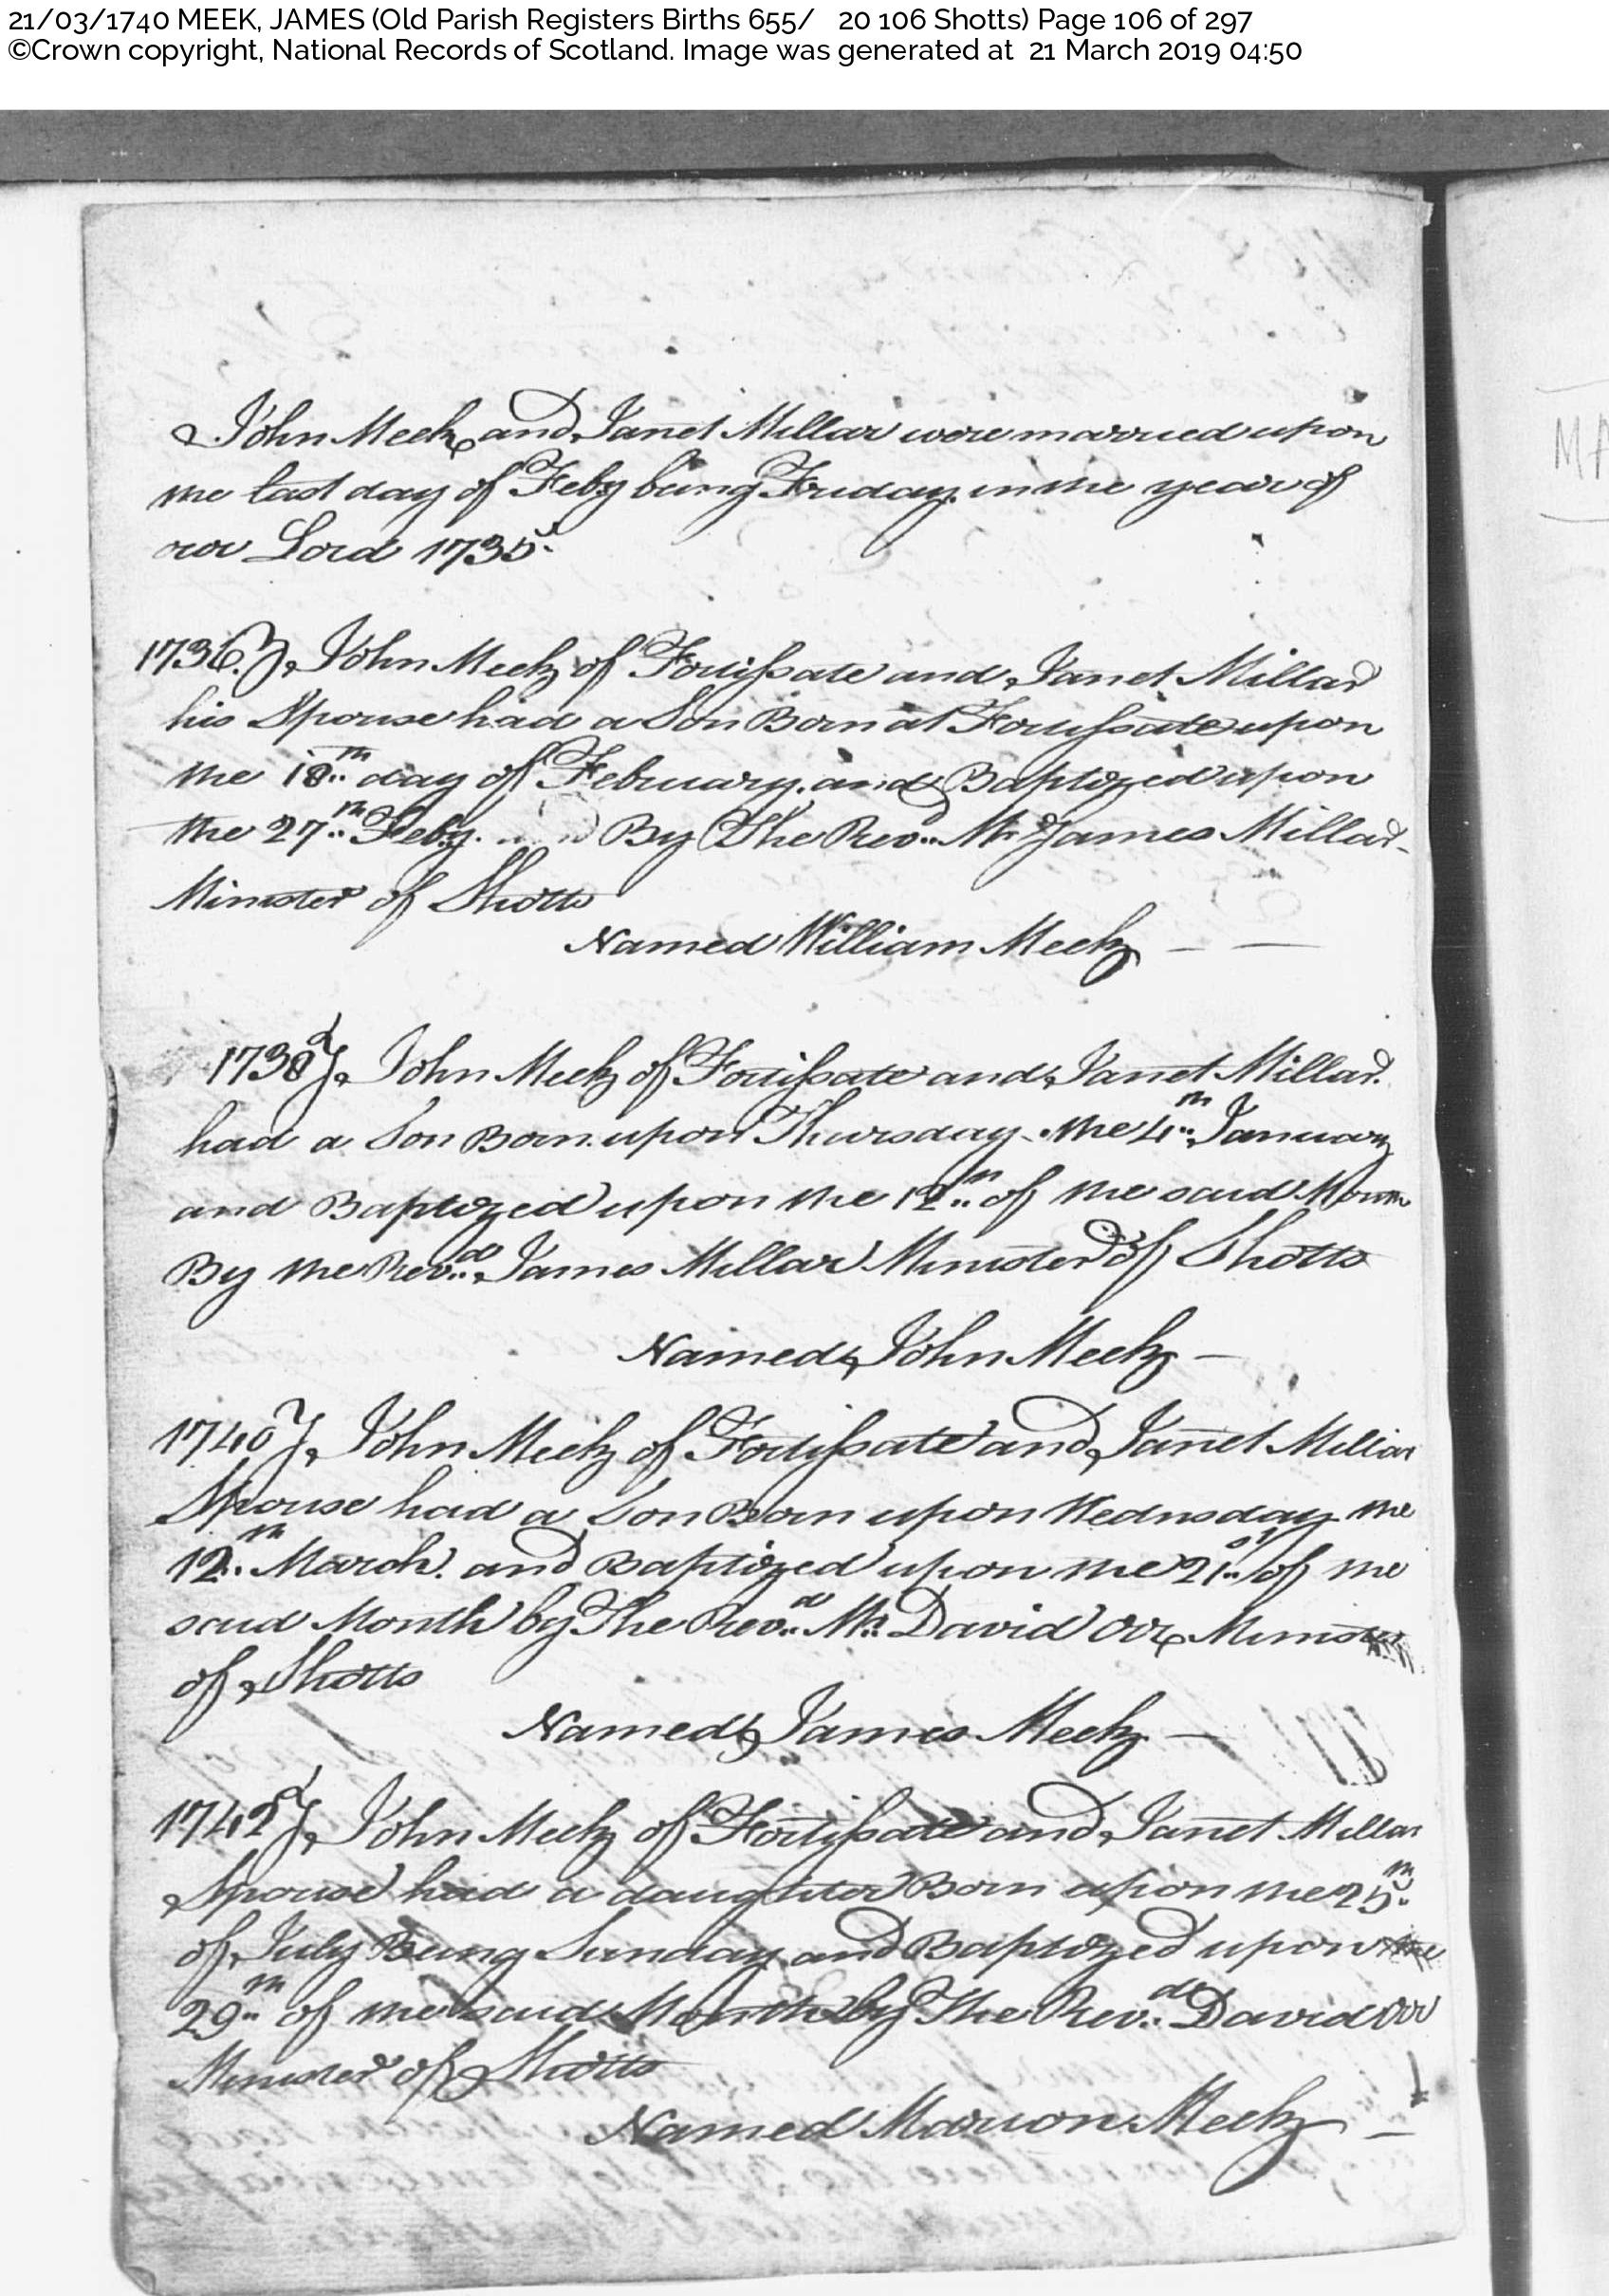 21/03/1740 MEEK, JAMES (Old Parish Registers Births 655/ 20 106 Shotts) Page 106 of 297
©Crown copyright, National Records of Scotland. Image was generated at 21 March 2019 04:50
John Meek and Janet Millar were married upon
the last day of Feby being Friday in the year of
our Lord 1735
MA
1736 John Meek of Fortissate and Janet Millar
his Spouse had a Son Born at Fortissate upon
the 18th day of February. and Baptized upon
the 27th Feby. By The Revd Mr James Millar
Minister of Shotts
Named William Meek
1738 John Meek of Fortissate and Janet Millar.
had a Son Born upon Thursday the 4th January
and Baptized upon the 12th of the said Month
By the Revd James Millar Minister of Shotts
Named John Meek
1740 John Meek of Fortissate and Janet Millar
Spouse had a Son Born upon Wednsday the
12th March. and Baptized upon the 21st of the
said Month by The Revd Mr David Orr Minister
of Shotts
Named James Meek
1742 John Meek of Fortissate and Janet Millar
Spouse had a daughter Born upon the 25th
of July Being Sunday and Baptized upon the
29th of the said Month by The Revd David Orr
Minister of Shotts
Named Marion Meek